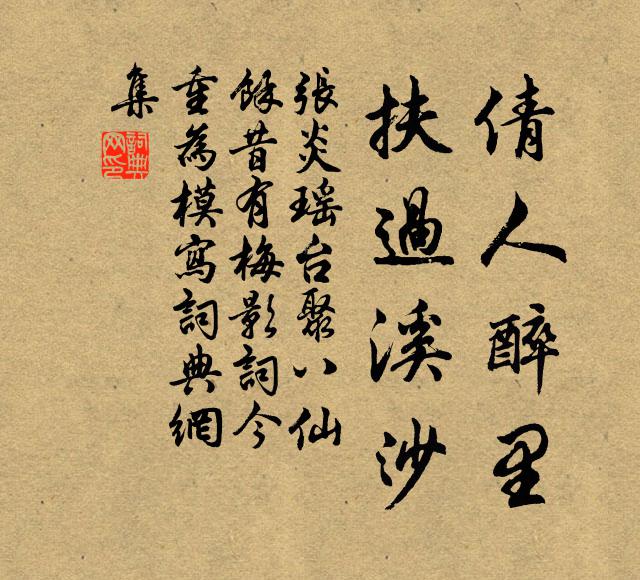 倩人醉里
扶過溪沙
張炎瑤台聚八仙
餘昔有梅影詞今
重為模寫詞典網
集
詞典
网印